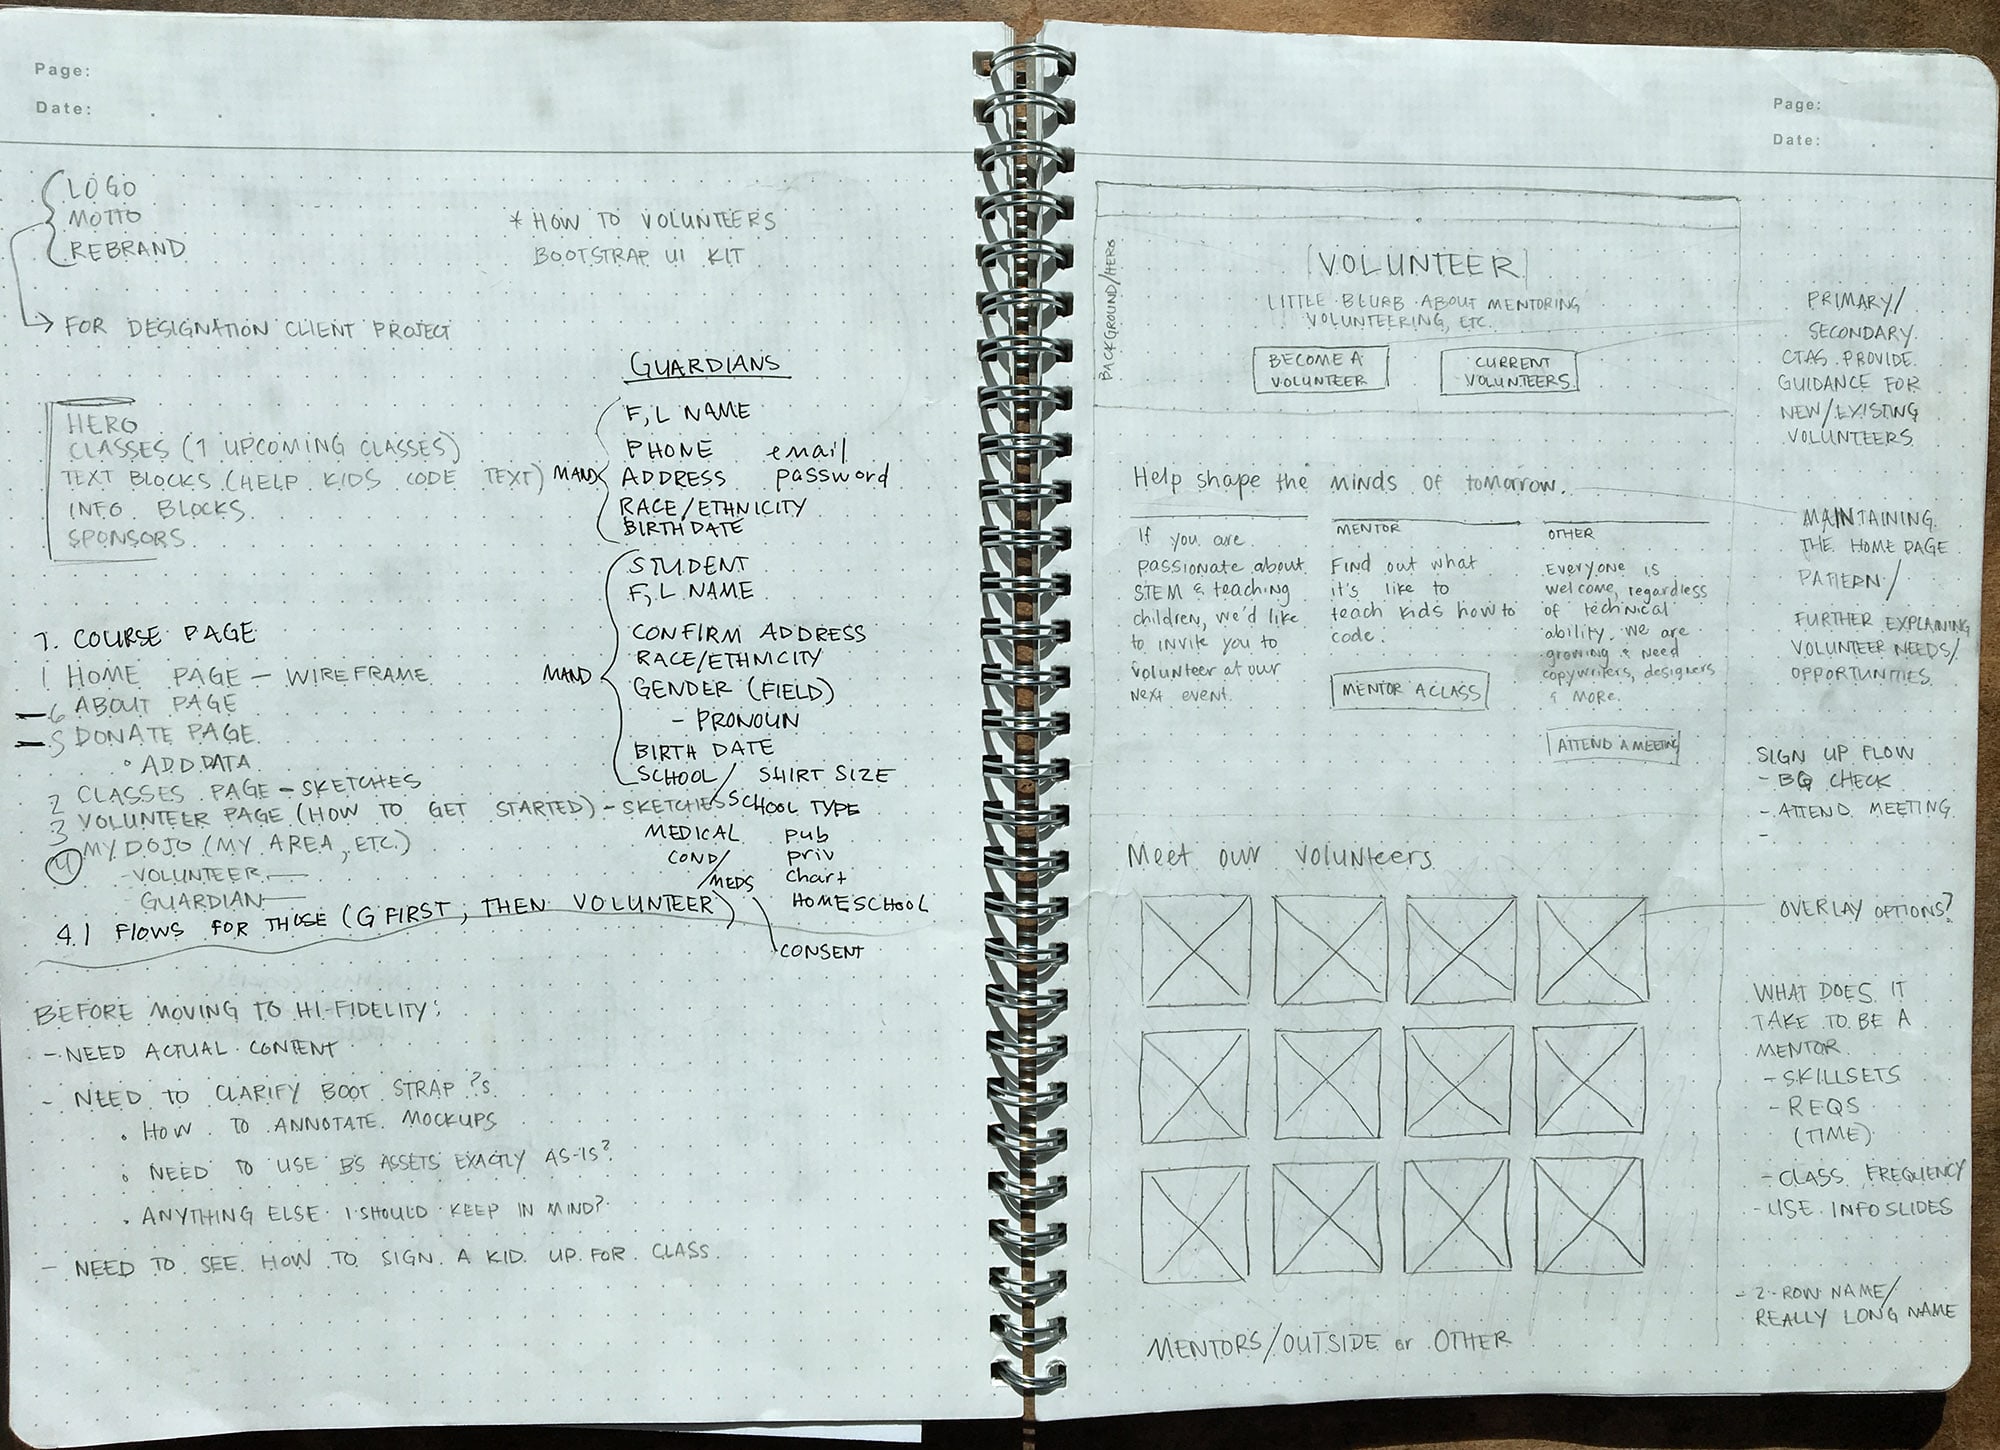 Page:
Date:
LOGO
MOTTO
REBRAND
* HOW TO VOLUNTEERS
BOOTSTRAP UI KIT
FOR DESIGNATION CLIENT PROJECT
HERO
CLASSES (7 UPCOMING CLASSES)
TEXT BLOCKS (HELP KIDS CODE TEXT)
INFO BLOCKS
SPONSORS
GUARDIANS
MAND
F, L NAME
PHONE email
ADDRESS password
RACE/ETHNICITY
BIRTHDATE
MAND
STUDENT
F, L NAME
CONFIRM ADDRESS
RACE/ETHNICITY
GENDER (FIELD)
- PRONOUN
BIRTH DATE
SCHOOL / SHIRT SIZE
SCHOOL TYPE
pub
priv
Chart
HOMESCHOOL
MEDICAL
COND/
/MEDS
CONSENT
7. COURSE PAGE
1 HOME PAGE - WIREFRAME
- 6 ABOUT PAGE
- 5 DONATE PAGE
• ADD DATA
2 CLASSES PAGE - SKETCHES
3 VOLUNTEER PAGE (HOW TO GET STARTED) - SKETCHES
4 MY DOJO (MY AREA, ETC.)
- VOLUNTEER
GUARDIAN
4.1 FLOWS FOR THOSE (G FIRST, THEN VOLUNTEER)
BEFORE MOVING TO HI-FIDELITY:
- NEED ACTUAL CONTENT
- NEED TO CLARIFY BOOT STRAP ?s
• HOW TO ANNOTATE MOCKUPS
• NEED TO USE BS ASSETS EXACTLY AS-IS?
• ANYTHING ELSE I SHOULD KEEP IN MIND?
- NEED TO SEE HOW TO SIGN A KID UP FOR CLASS
Page:
Date:
BACKGROUND/HERO
[VOLUNTEER]
LITTLE BLURB ABOUT MENTORING
VOLUNTEERING, ETC.
BECOME A
VOLUNTEER
CURRENT
VOLUNTEERS
PRIMARY/
SECONDARY
CTAS PROVIDE
GUIDANCE FOR
NEW/EXISTING
VOLUNTEERS
Help shape the minds of tomorrow.
If you are
passionate about
STEM & teaching
children, we'd like
to invite you to
volunteer at our
next event.
MENTOR
Find out what
it's like to
teach kids how to
code.
MENTOR A CLASS
OTHER
Everyone is
welcome, regardless
of technical
ability. we are
growing & need
copywriters, designers
& more.
ATTEND A MEETING
MAINTAINING
THE HOME PAGE
PATTERN/
FURTHER EXPLAINING
VOLUNTEER NEEDS/
OPPORTUNITIES
SIGN UP FLOW
- BG CHECK
- ATTEND MEETING
-
Meet our volunteers
OVERLAY OPTIONS?
WHAT DOES IT
TAKE TO BE A
MENTOR
- SKILLSETS
- REQS
(TIME)
- CLASS FREQUENCY
- USE INFO SLIDES
- 2-ROW NAME/
REALLY LONG NAME
MENTORS/OUTSIDE or OTHER